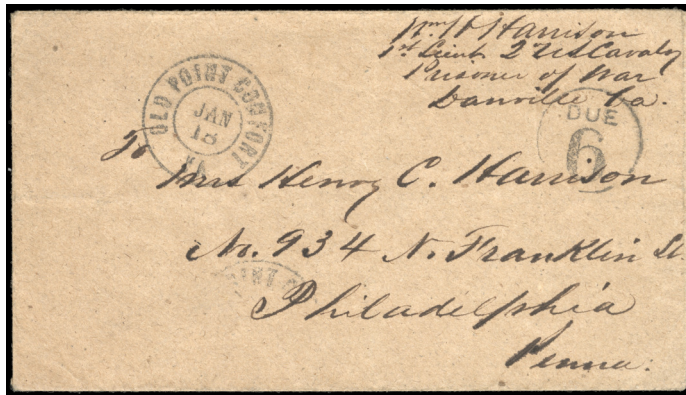 Wm H Harrison
1st Lieut 2 US Cavalry
Prisoner of War
Danville Va.
OLD POINT COMFORT
JAN
18
VA
DUE
6
To
Mrs Henry C. Harrison
No. 934 N. Franklin St.
Philadelphia
Penna.